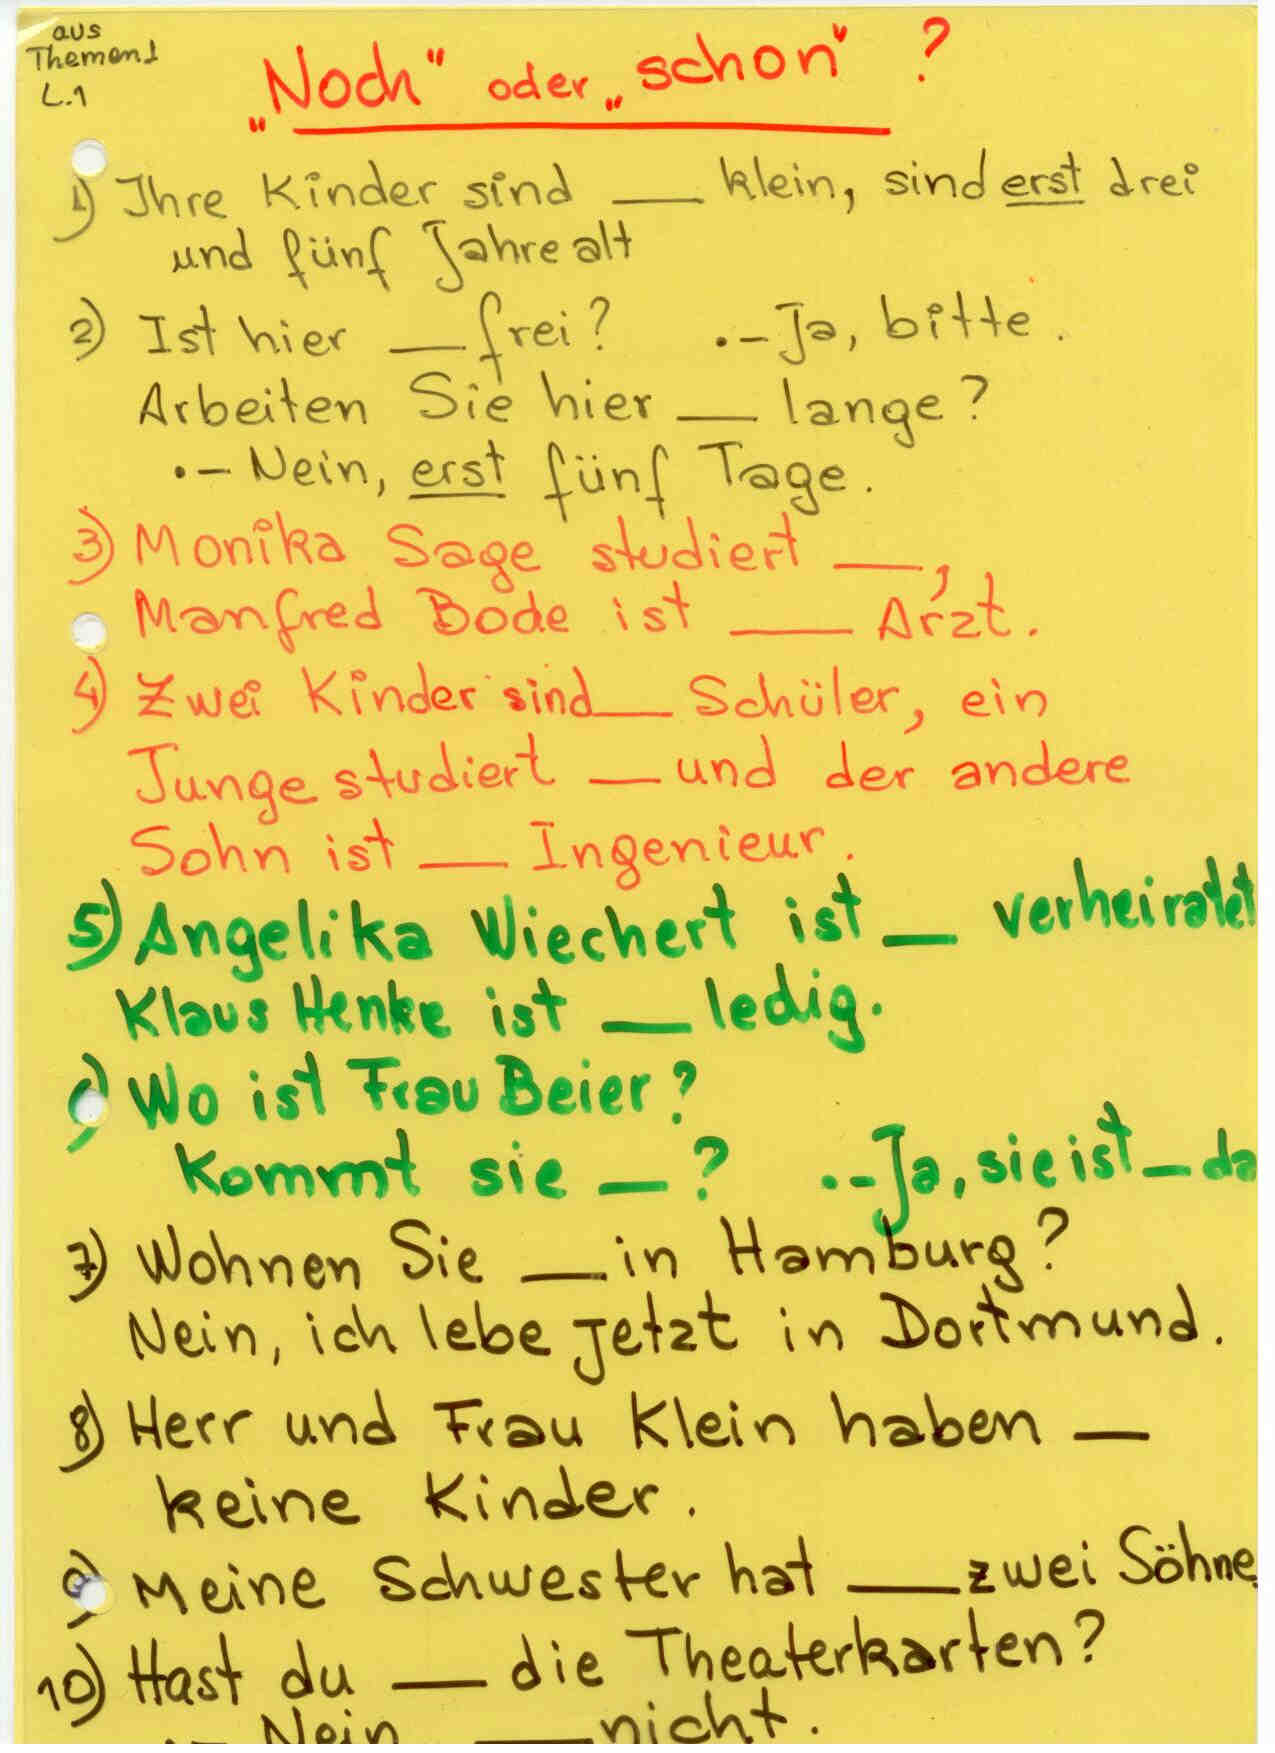 aus
Themen 1
L.1
„Noch“ oder „schon“ ?
1) Ihre Kinder sind ___ klein, sind erst drei
und fünf Jahre alt
2) Ist hier ___ frei? .– Ja, bitte.
Arbeiten Sie hier ___ lange?
.– Nein, erst fünf Tage.
3) Monika Sage studiert ___,
Manfred Bode ist ___ Arzt.
4) Zwei Kinder sind ___ Schüler, ein
Junge studiert ___ und der andere
Sohn ist ___ Ingenieur.
5) Angelika Wiechert ist ___ verheiratet
Klaus Henke ist ___ ledig.
6) Wo ist Frau Beier?
Kommt sie ___? .– Ja, sie ist ___ da
7) Wohnen Sie ___ in Hamburg?
Nein, ich lebe jetzt in Dortmund.
8) Herr und Frau Klein haben ___
keine Kinder.
9) Meine Schwester hat ___ zwei Söhne.
10) Hast du ___ die Theaterkarten?
.– Nein ___ nicht.